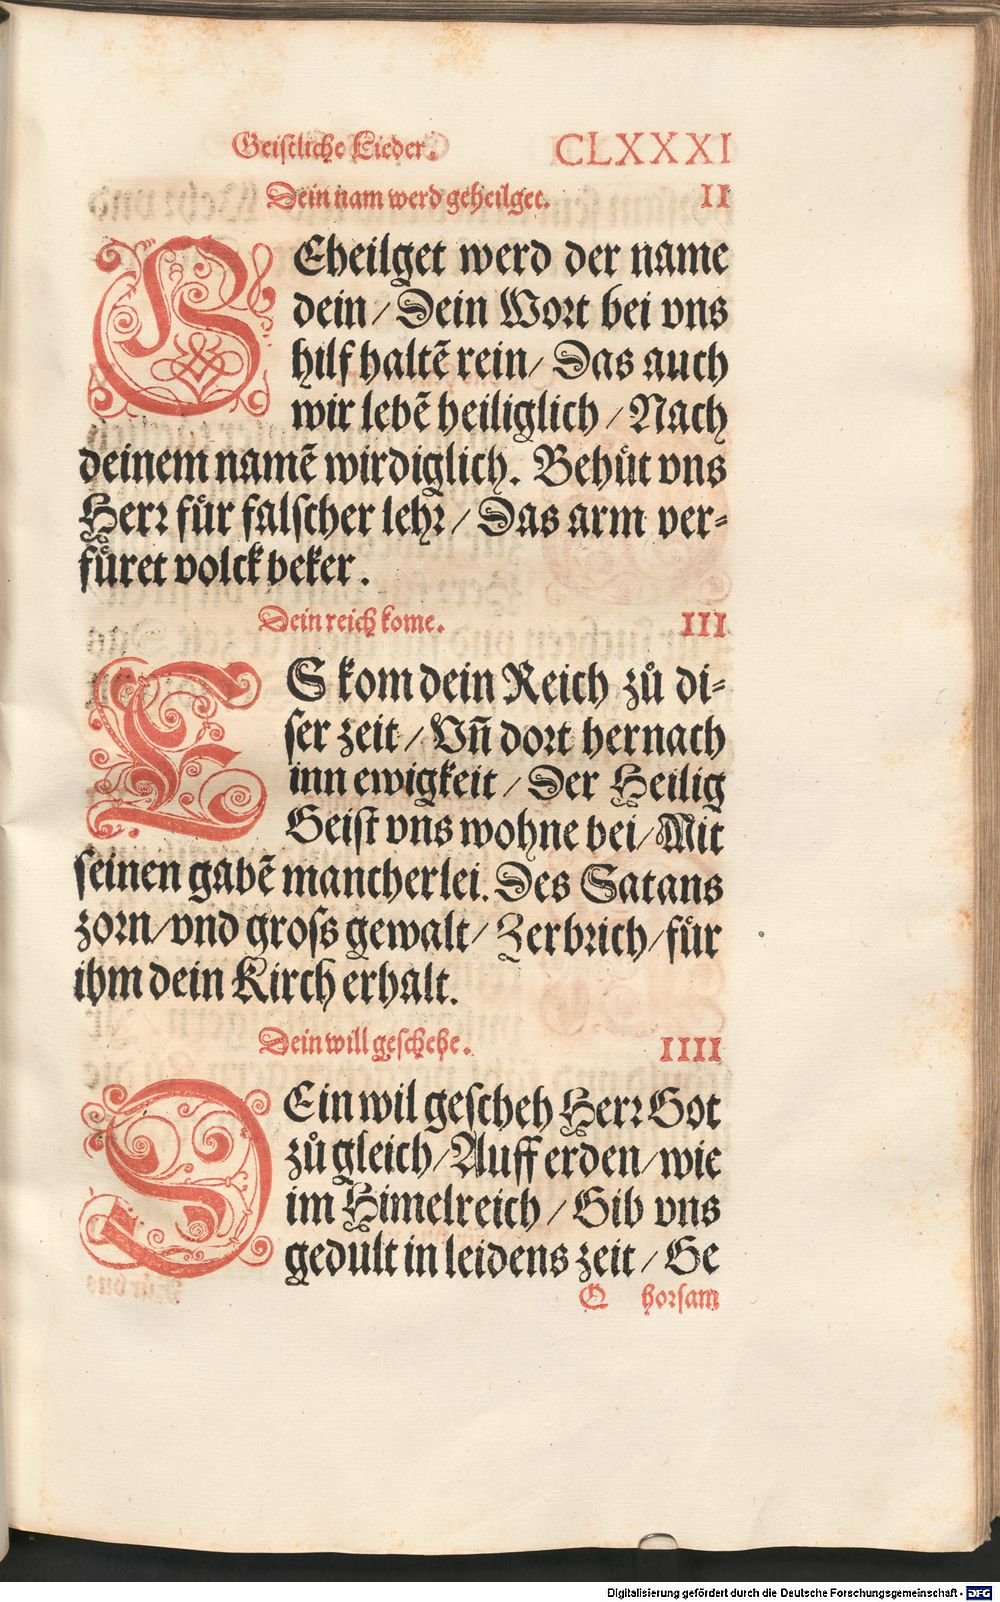 Geistliche Lieder. CLXXXI
Dein nam werd geheilget. II
GEheilget werd der name
dein / Dein Wort bei vns
hilf haltẽ rein / Das auch
wir lebẽ heiliglich / Nach
deinem namẽ wirdiglich. Behuͤt vns
Herr fuͤr falscher lehr / Das arm ver⸗
fuͤret volck beker.
Dein reich kome. III
ES kom dein Reich zuͦ di⸗
ser zeit / Vñ dort hernach
inn ewigkeit / Der Heilig
Geist vns wohne bei / Mit
seinen gabẽ mancherlei. Des Satans
zorn / vnd gross gewalt / Zerbrich / fuͤr
ihm dein Kirch erhalt.
Dein will geschehe. IIII
DEin wil gescheh Herr Got
zuͦ gleich / Auff erden / wie
im Himelreich / Gib vns
gedult in leidens zeit / Ge
Q horsam
Digitalisierung gefördert durch die Deutsche Forschungsgemeinschaft - DFG